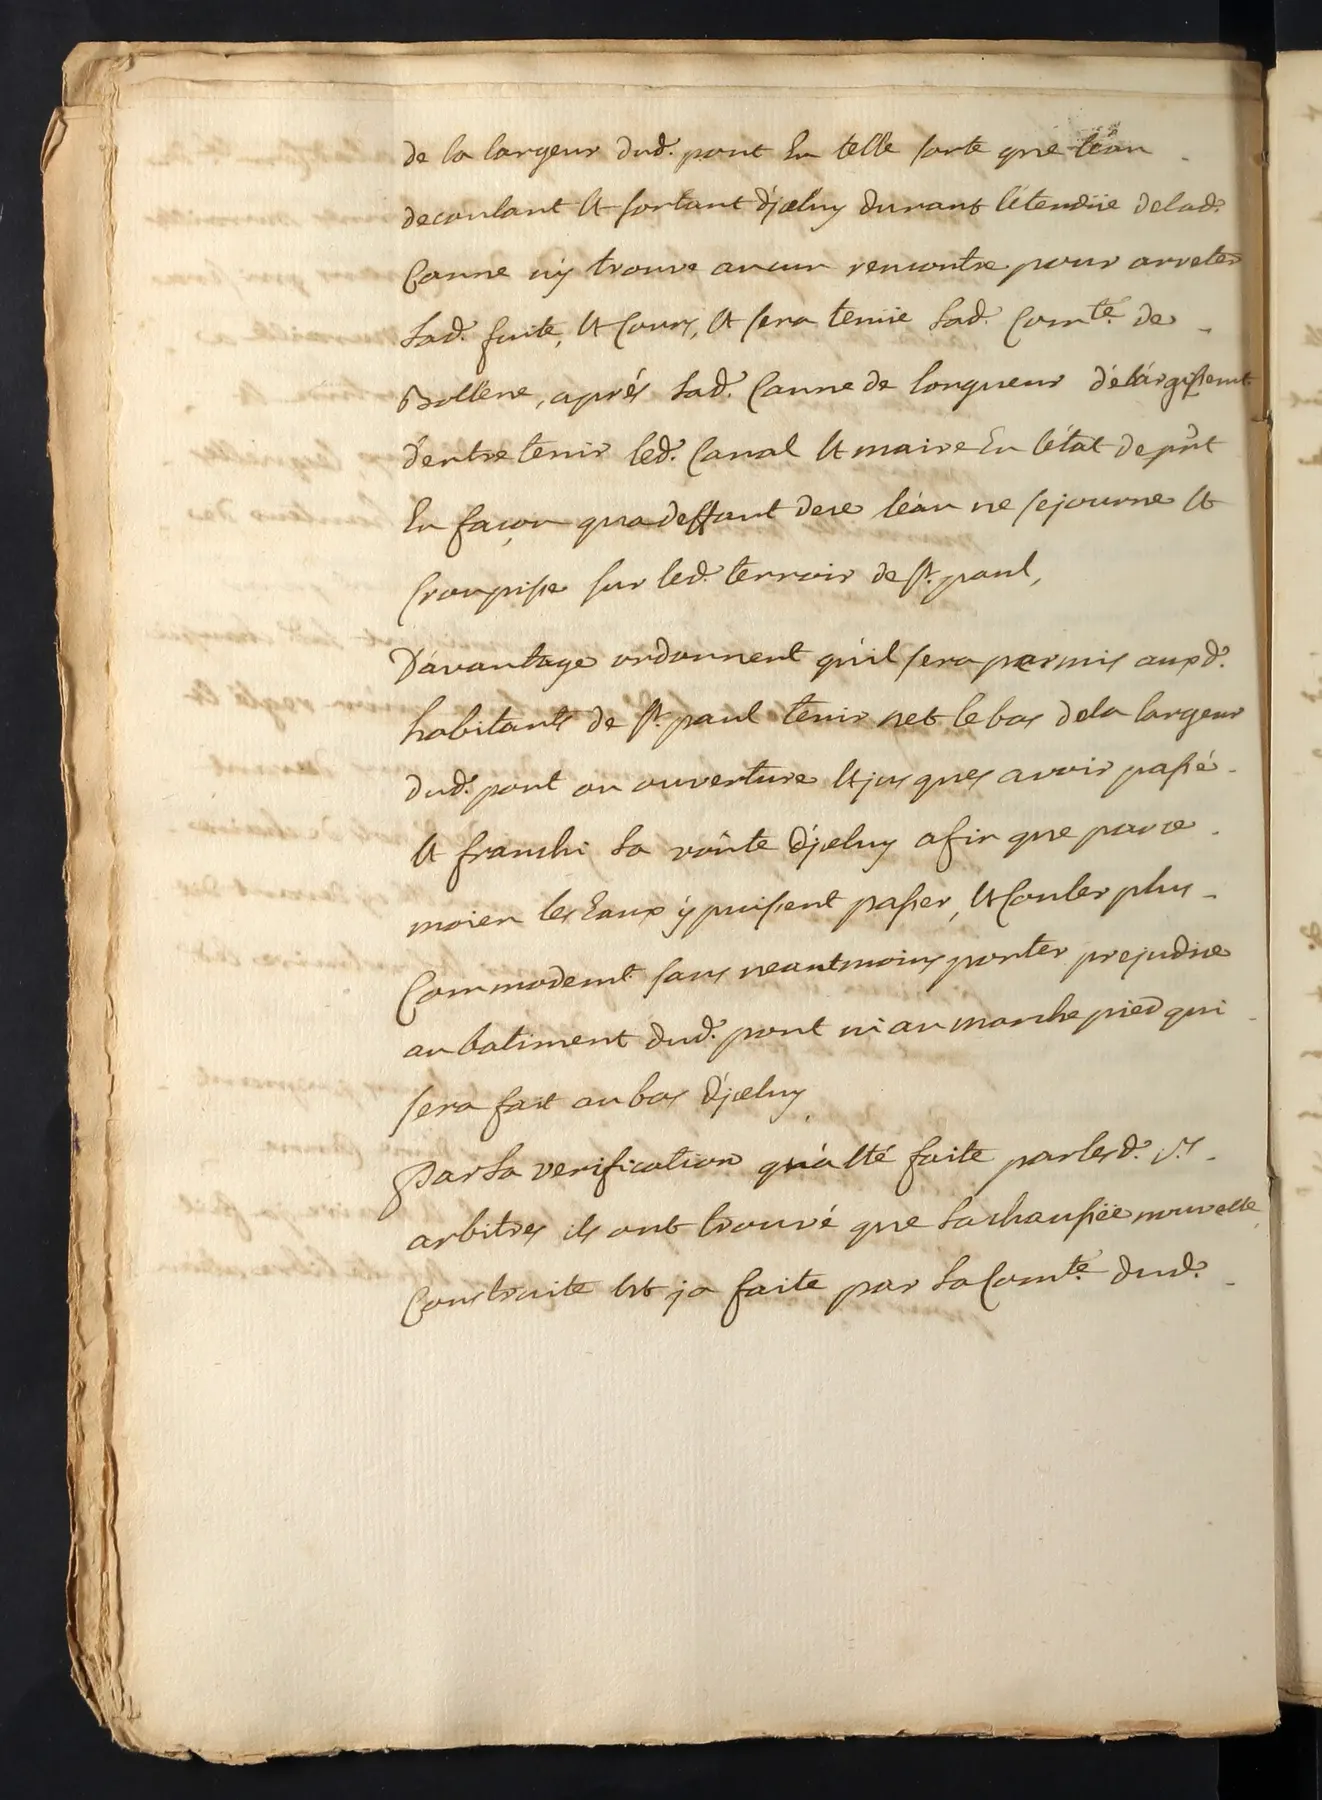 de la largeur dud. pont En telle sorte que l'eau
decoulant Et sortant d'jceluy durant l'étendüe delad.
Canne n'y trouve aucun rencontre pour arreter
Lad. fuite, Et Cours, Et sera tenüe Lad. Comte. de
Bollene, aprés Lad. Canne de longueur d'élargissemt.
d'entretenir led. Canal Et maire En l'état deprñt
En façon qu'a deffaut dece l'eau ne sejourne Et
Croupisse sur led. terroir de St. paul,
D'avantage ordonnent qu'il sera permis auxd.
habitants de St. paul tenir net le bas dela largeur
dud. pont ou ouverture Et jusques avoir passé
Et franchi La voûte d'jceluy afin que parce
moien les Eaux ÿ puissent passer, Et Couler plus
Commodemt. sans neantmoins porter prejudice
au batiment dud. pont ni au marche pied qui
sera fait au bas d'jceluy
Par La verification qu'a Eté faite par lesd. Srs.
arbitres ils ont trouvé que La chaussée nouvelle
Construite Et ja faite par La Comte. dud.